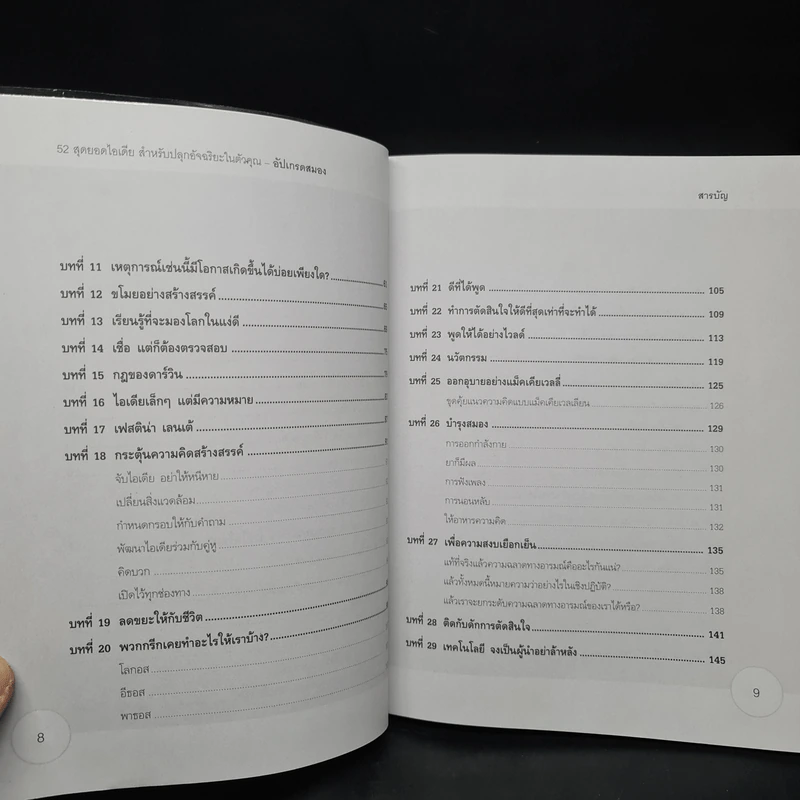 52 สุดยอดไอเดีย สำหรับปลุกอัจฉริยะในตัวคุณ – อัปเกรดสมอง
บทที่ 11 เหตุการณ์เช่นนี้มีโอกาสเกิดขึ้นได้บ่อยเพียงใด?
บทที่ 12 ขโมยอย่างสร้างสรรค์
บทที่ 13 เรียนรู้ที่จะมองโลกในแง่ดี
บทที่ 14 เชื่อ แต่ก็ต้องตรวจสอบ
บทที่ 15 กฎของดาร์วิน
บทที่ 16 ไอเดียเล็กๆ แต่มีความหมาย
บทที่ 17 เฟสติน่า เลนเต้
บทที่ 18 กระตุ้นความคิดสร้างสรรค์
จับไอเดีย อย่าให้หนีหาย
เปลี่ยนสิ่งแวดล้อม
กำหนดกรอบให้กับคำถาม
พัฒนาไอเดียร่วมกับคู่หู
คิดบวก
เปิดไว้ทุกช่องทาง
บทที่ 19 ลดขยะให้กับชีวิต
บทที่ 20 พวกกรีกเคยทำอะไรให้เราบ้าง?
โลกอส
อีธอส
พาธอส
8
สารบัญ
บทที่ 21 ดีที่ได้พูด 105
บทที่ 22 ทำการตัดสินใจให้ดีที่สุดเท่าที่จะทำได้ 109
บทที่ 23 พูดให้ได้อย่างไวลด์ 113
บทที่ 24 นวัตกรรม 119
บทที่ 25 ออกอุบายอย่างแม็คเคียเวลลี่ 125
ชุดคุ้ยแนวความคิดแบบแม็คเคียเวลเลียน 126
บทที่ 26 บำรุงสมอง 129
การออกกำลังกาย 130
ยาก็มีผล 130
การฟังเพลง 131
การนอนหลับ 131
ให้อาหารความคิด 132
บทที่ 27 เพื่อความสงบเยือกเย็น 135
แท้ที่จริงแล้วความฉลาดทางอารมณ์คืออะไรกันแน่? 135
แล้วทั้งหมดนี้หมายความว่าอย่างไรในเชิงปฏิบัติ? 138
แล้วเราจะยกระดับความฉลาดทางอารมณ์ของเราได้หรือ? 138
บทที่ 28 ติดกับดักการตัดสินใจ 141
บทที่ 29 เทคโนโลยี จงเป็นผู้นำอย่าล้าหลัง 145
9